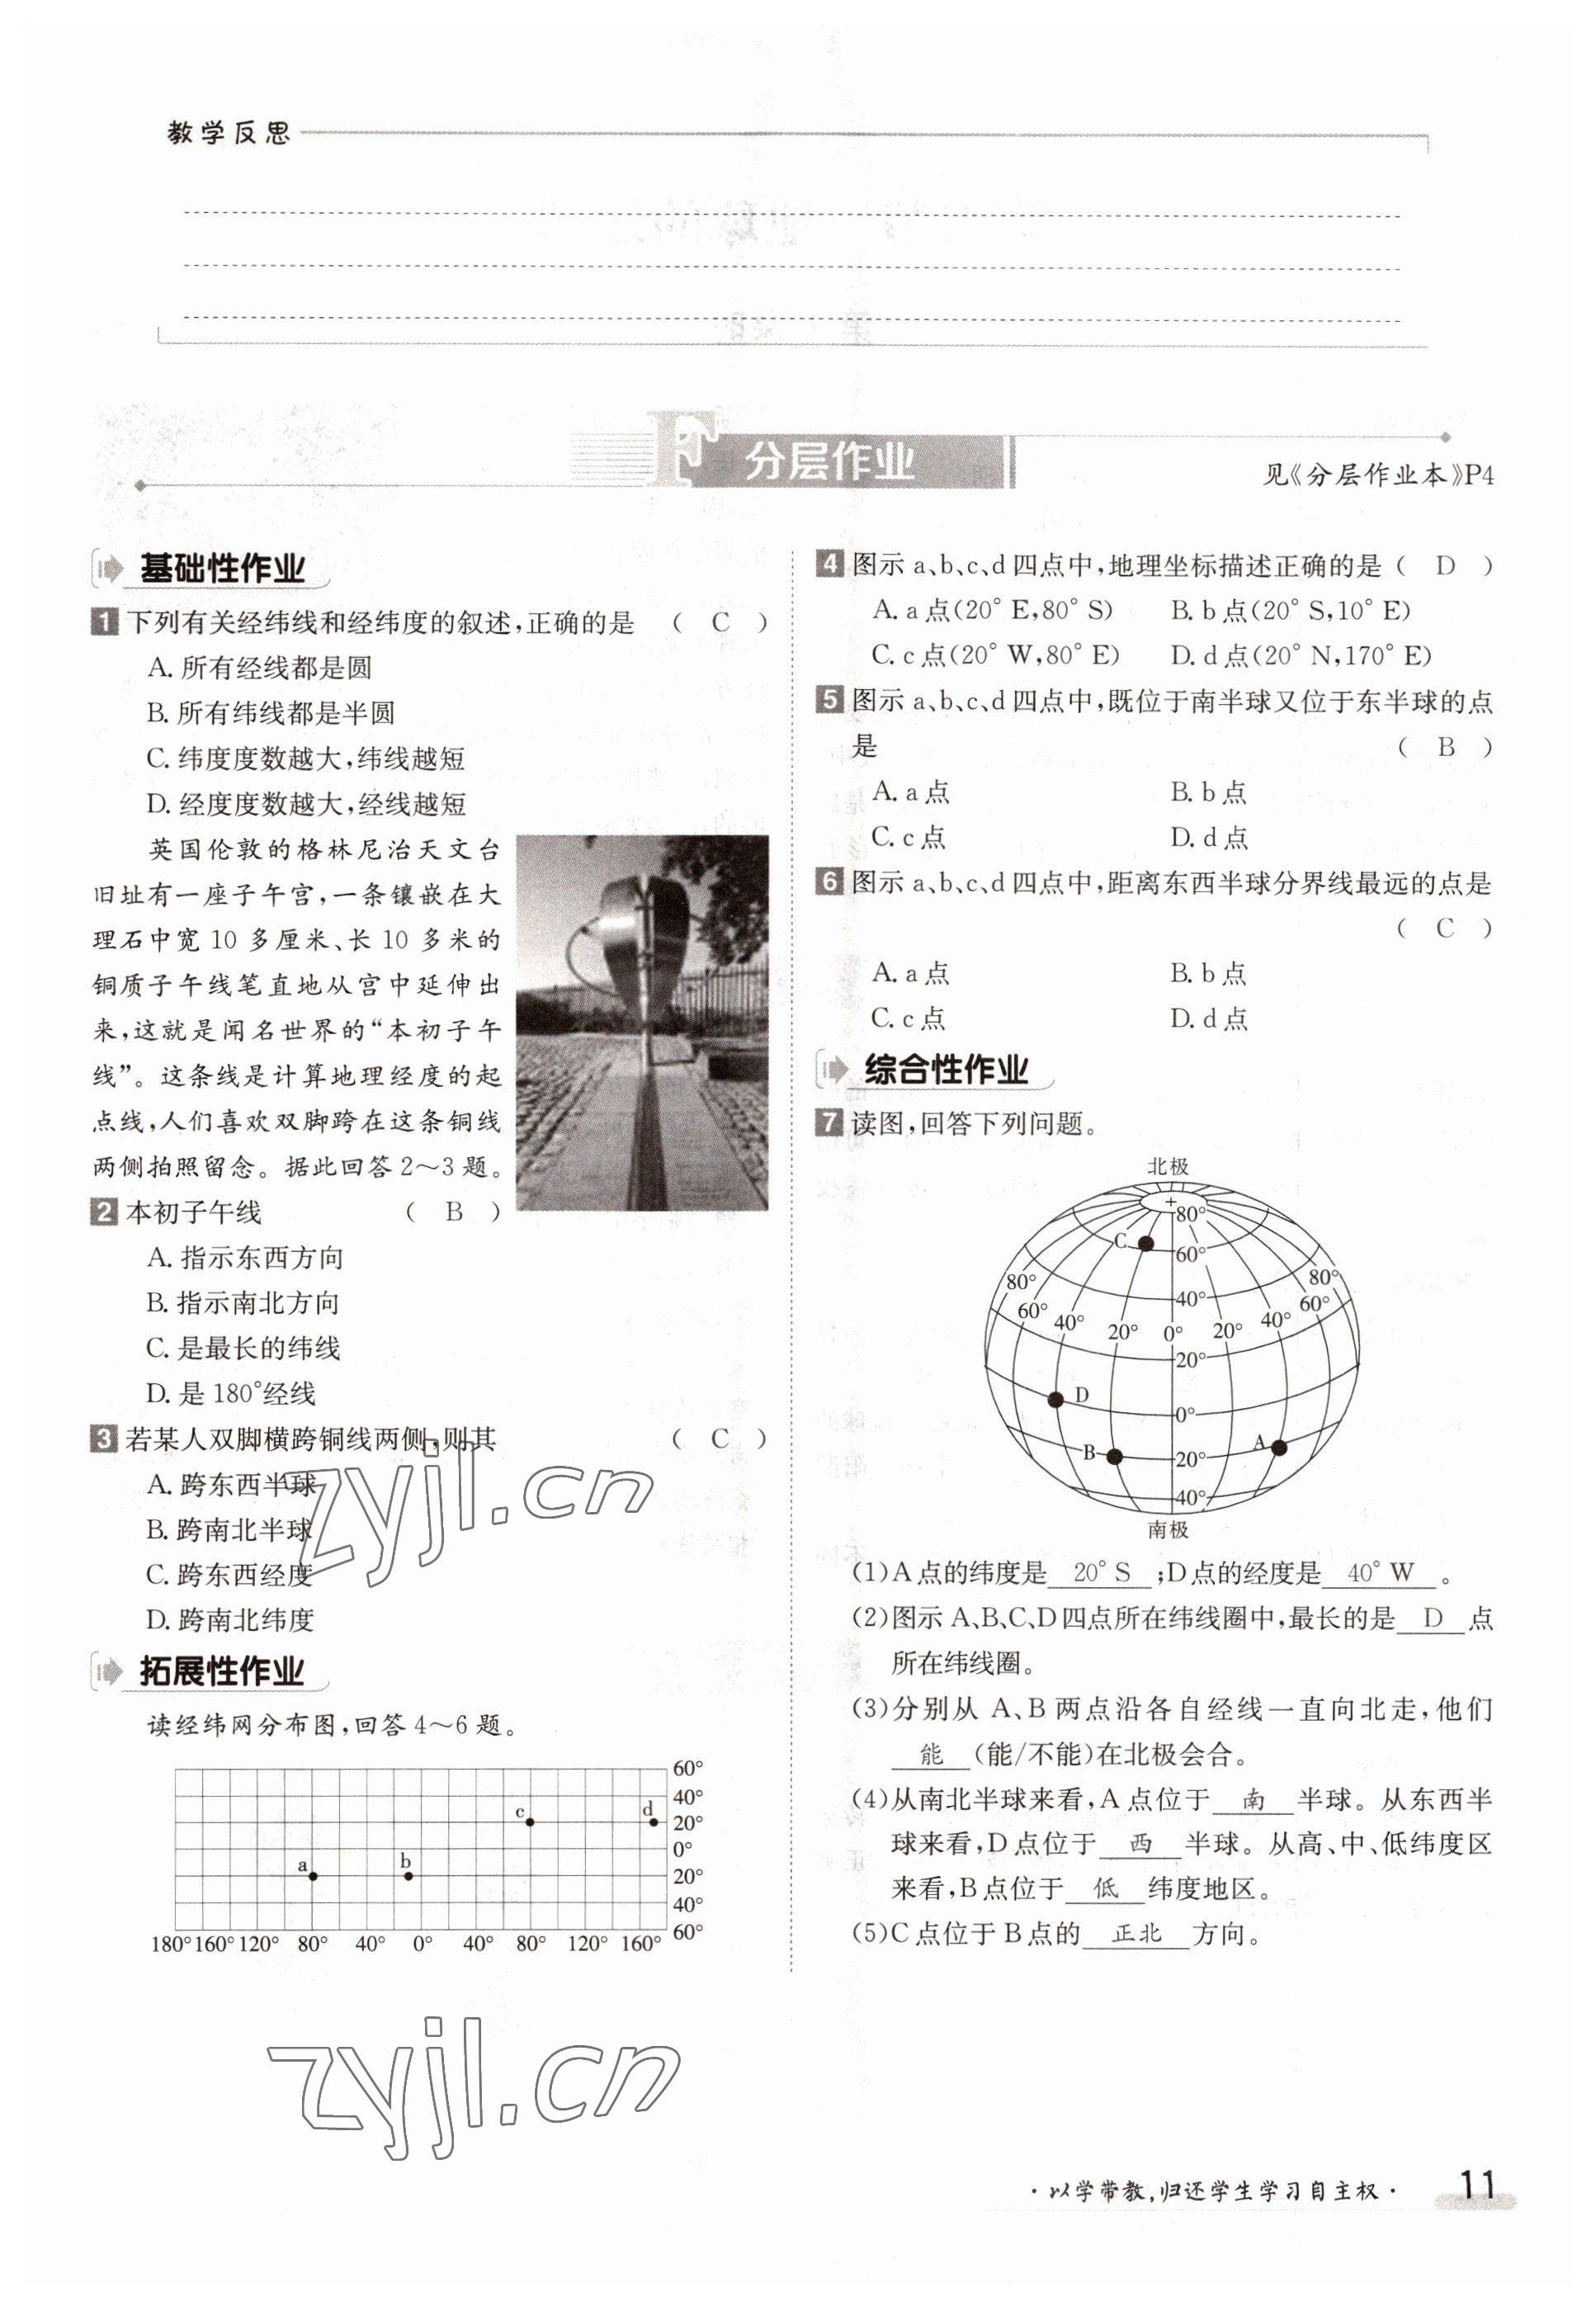 教学反思
F 分层作业
见《分层作业本》P4
基础性作业
1 下列有关经纬线和经纬度的叙述,正确的是 ( C )
A. 所有经线都是圆
B. 所有纬线都是半圆
C. 纬度度数越大,纬线越短
D. 经度度数越大,经线越短
英国伦敦的格林尼治天文台
旧址有一座子午宫,一条镶嵌在大
理石中宽 10 多厘米、长 10 多米的
铜质子午线笔直地从宫中延伸出
来,这就是闻名世界的“本初子午
线”。这条线是计算地理经度的起
点线,人们喜欢双脚跨在这条铜线
两侧拍照留念。据此回答2～3题。
2 本初子午线 ( B )
A. 指示东西方向
B. 指示南北方向
C. 是最长的纬线
D. 是 180°经线
3 若某人双脚横跨铜线两侧,则其 ( C )
A. 跨东西半球
B. 跨南北半球
C. 跨东西经度
D. 跨南北纬度
zyjl.cn
拓展性作业
读经纬网分布图,回答4～6题。
60°
40°
c d 20°
0°
a b 20°
40°
60°
180° 160° 120° 80° 40° 0° 40° 80° 120° 160°
zyjl.cn
4 图示 a、b、c、d 四点中,地理坐标描述正确的是 ( D )
A. a 点(20° E,80° S) B. b 点(20° S,10° E)
C. c 点(20° W,80° E) D. d 点(20° N,170° E)
5 图示 a、b、c、d 四点中,既位于南半球又位于东半球的点
是 ( B )
A. a 点 B. b 点
C. c 点 D. d 点
6 图示 a、b、c、d 四点中,距离东西半球分界线最远的点是
( C )
A. a 点 B. b 点
C. c 点 D. d 点
综合性作业
7 读图,回答下列问题。
北极
80°
C 60°
80° 60° 40° 20° 0° 20° 40° 60° 80°
40°
20°
D 0°
B 20° A
40°
南极
(1)A 点的纬度是 20° S ;D 点的经度是 40° W 。
(2)图示 A、B、C、D 四点所在纬线圈中,最长的是 D 点
所在纬线圈。
(3)分别从 A、B 两点沿各自经线一直向北走,他们
能 (能/不能)在北极会合。
(4)从南北半球来看,A 点位于 南 半球。从东西半
球来看,D 点位于 西 半球。从高、中、低纬度区
来看,B 点位于 低 纬度地区。
(5)C 点位于 B 点的 正北 方向。
·以学带教,归还学生学习自主权· 11